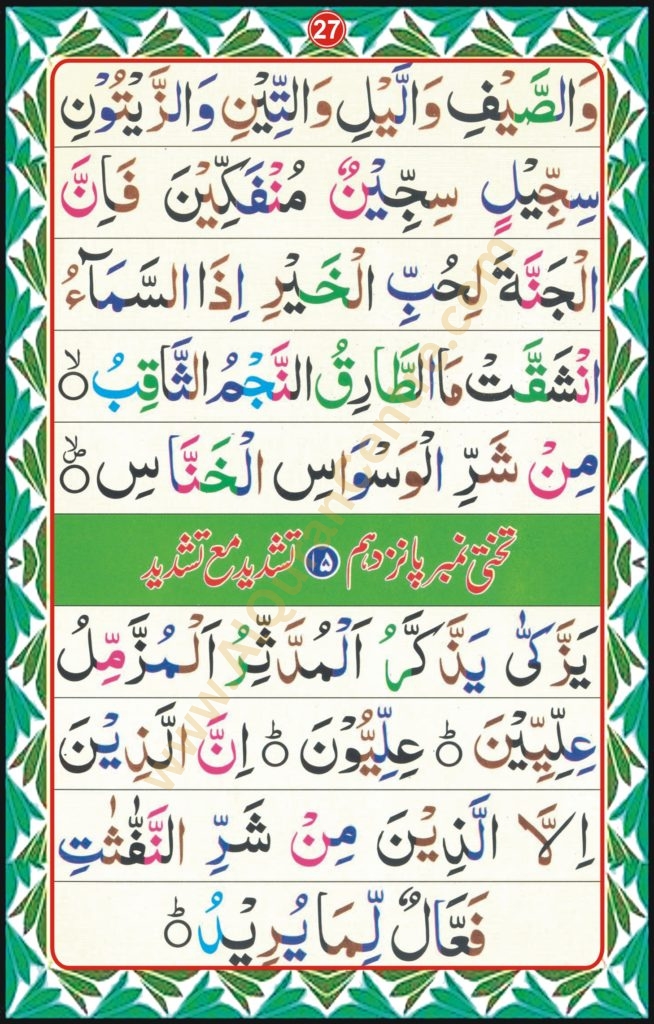 27
وَالصَّيْفِ وَالَّيْلِ وَالتِّيْنِ وَالزَّيْتُوْنِ
سِجِّيْلٍ سِجِّيْنٌ مُنْفَكِّيْنَ فَاِنَّ
الْجَنَّةَ لِحُبِّ الْخَيْرِ اِذَا السَّمَآءُ
انْشَقَّتْ مَا الطَّارِقُ النَّجْمُ الثَّاقِبُ ۙ
مِنْ شَرِّ الْوَسْوَاسِ الْخَنَّاسِ
تختی نمبر پانزدہم ۱۵ تشدید مع تشدید
يَزَّكّٰى يَذَّكَّرُ اَلْمُدَّثِّرُ اَلْمُزَّمِّلُ
عِلِّيِّيْنَ ؕ عِلِّيُّوْنَ ؕ اِنَّ الَّذِيْنَ
اِلَّا الَّذِيْنَ مِنْ شَرِّ النَّفّٰثٰتِ
فَعَّالٌ لِّمَا يُرِيْدُ ؕ
www.AlQuranCenter.com